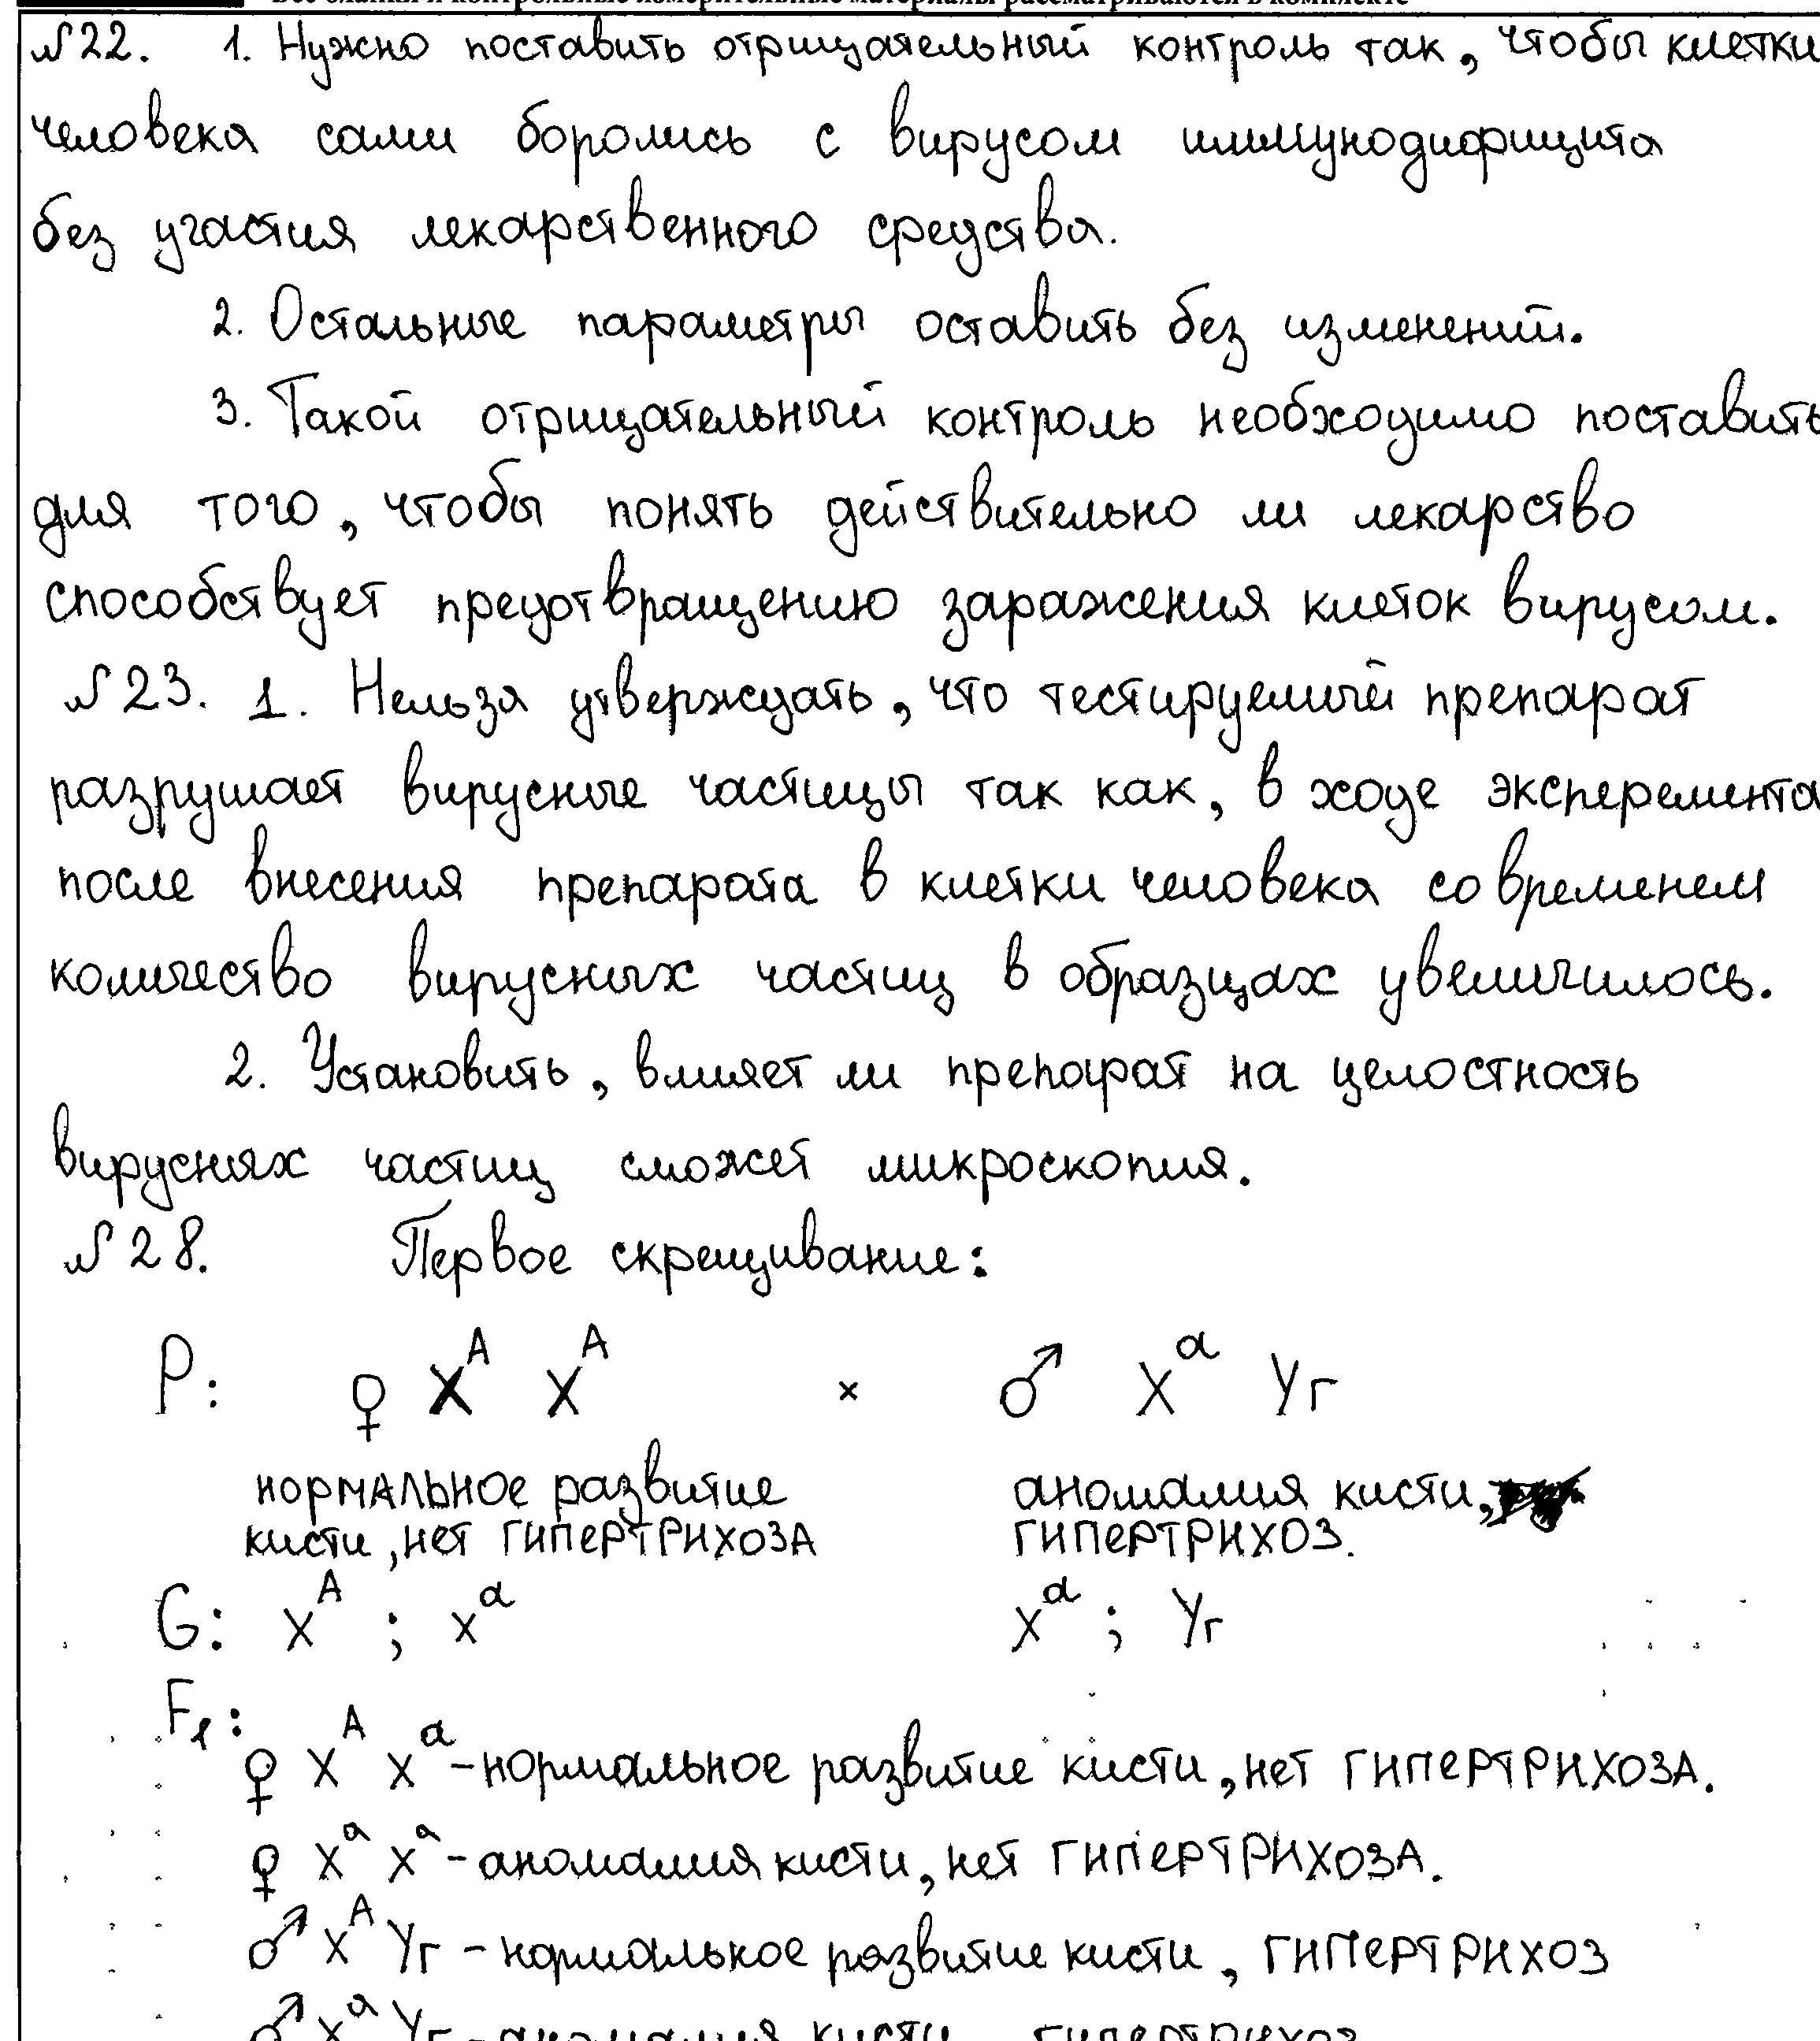 Все бланки и контрольные измерительные материалы рассматриваются в комплекте
№22. 1. Нужно поставить отрицательный контроль так, чтобы клетки
человека сами боролись с вирусом иммунодифицита
без участия лекарственного средства.
2. Остальные параметры оставить без изменений.
3. Такой отрицательный контроль необходимо поставить
для того, чтобы понять действительно ли лекарство
способствует предотвращению заражения клеток вирусом.
№23. 1. Нельзя утверждать, что тестируемый препарат
разрушает вирусные частицы так как, в ходе эксперемента
после внесения препарата в клетки человека со временем
количество вирусных частиц в образцах увеличилось.
2. Установить, влияет ли препарат на целостность
вирусных частиц сможет микроскопия.
№28. Первое скрещивание:
P: ♀ X^A X^A × ♂ X^a Yг
нормальное развитие аномалия кисти,
кисти, нет гипертрихоза гипертрихоз.
G: X^A ; X^a X^a ; Yг
F1:
♀ X^A X^a - нормальное развитие кисти, нет гипертрихоза.
♀ X^a X^a - аномалия кисти, нет гипертрихоза.
♂ X^A Yг - нормальное развитие кисти, гипертрихоз
♂ X^a Yг - аномалия кисти, гипертрихоз